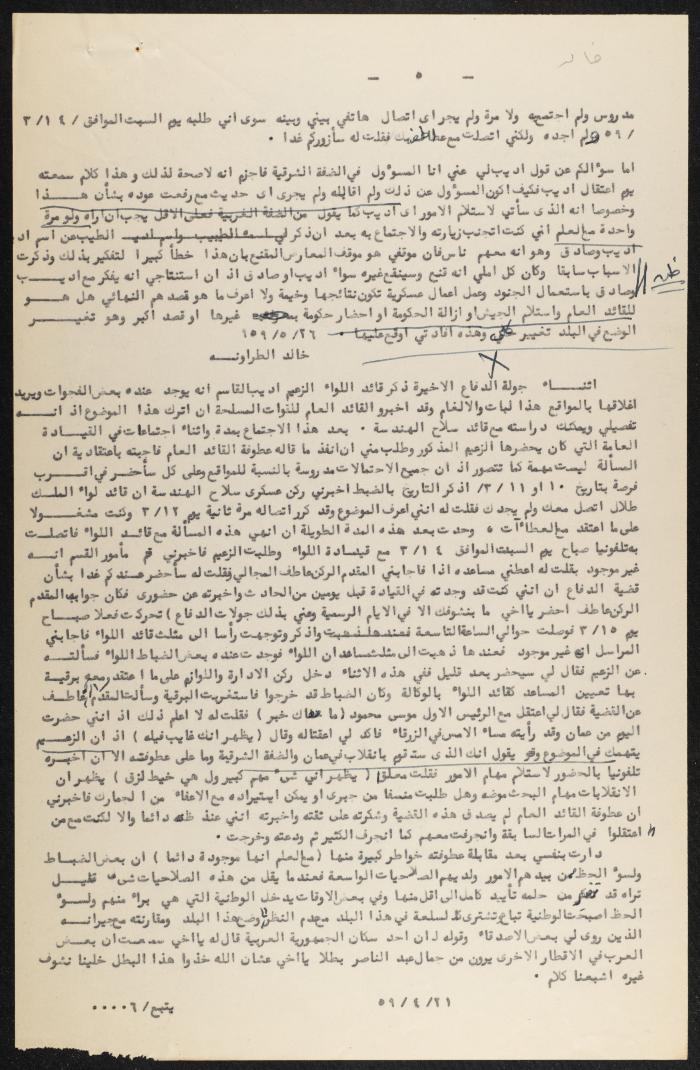 خالد
- ٥ -
مدروس ولم اجتمع به ولا مرة ولم يجر اى اتصال هاتفي بيني وبينه سوى اني طلبه يوم السبت الموافق ٣/١٤/
٥٩ ولم اجده ولكني اتصلت مع عاطف بك فقلت له سأزوركم غدا .
اما سؤالكم عن قول اديب لي عني انا المسؤول في الضفة الشرقية فاجزم انه لاصحة لذلك وهذا كلام سمعته
يوم اعتقال اديب فكيف اكون المسؤول عن ذلك ولم اقابله ولم يجرى اى حديث مع رفعت عوده بشأن هــذا
وخصوصا انه الذى سأتي لاستلام الامور اى اديب كما يقول من الضفة الغربية فعلى الاقل يجب ان اراه ولو مرة
واحدة مع العلم اني كنت اتجنب زيارته والاجتماع به بعد ان ذكر لي الطيب عن اسم اد
اديب وصادق وهو انه معهم ناس فان موقفي هو موقف المعارض المقنع بان هذا خطأ كبيرا لتفكير بذلك وذكرت
الاسباب سابقا وكان كل املي انه قنع وسيقنع غيره سواء اديب او صادق اذ ان استنتاجي انه يفكر مع اديــب
وصادق باستعمال الجنود وعمل اعمال عسكرية تكون نتائجها وخيمة ولا اعرف ما هو قصدهم النهائي هل هــو
للقائد العام واستلام الجيش او ازالة الحكومة او احضار حكومة غيرها او قصد اكبر وهو تغيــر
الوضع في البلد تغيير كلي وهذه افادتي اوقع عليها . ٥٩/٥/٢٦
خالد الطراونــه
اثنــاء جولة الدفاع الاخيرة ذكر قائد اللواء الزعيم اديب القاسم انه يوجد عنده بعض الفجوات ويريد
اغلاقها بالمواقع هذا لمبات والالغام وقد اخبرو القائد العام للقوات المسلحة ان اترك هذا الموضوع اذ انــه
تفصيلي ويمكنك دراسته مع قائد سلاح الهندسة . بعد هذا الاجتماع بمدة واثناء اجتماعات في القيــادة
العامة التي كان يحضرها الزعيم المذكور وطلب مني ان انفذ ما قاله عطوفة القائد العام فاجبته باعتقادية ان
المسألة ليست مهمة كما تتصور اذ ان جميع الاحتمالات مدروسة بالنسبة للمواقع وعلى كل سأحضر في اقــرب
فرصة بتاريخ ١٠ او ٣/١١/ اذكر التاريخ بالضبط اخبرني ركن عسكرى سلاح الهندسة ان قائد لواء الملــك
طلال اتصل معك ولم يجدك فقلت له انني اعرف الموضوع وقد كرر اتصاله مرة ثانية يوم ٣/١٢ وكنت مشغــولا
على ما اعتقد مع العطاءات ، وحدت بعد هذه المدة الطويلة ان انهي هذه المسألة مع قائــد اللواء فاتصلــت
به تلفونيا صباح يوم السبت الموافق ٣/١٤ مع قيــادة اللواء وطلبت الزعيم فاخبرني قم مأمور القسم انــه
غير موجود بقلت له اعطني مساعده اذا فاجابني المقدم الركن عاطف المجالي فقلت له سأحضر عندكم غدا بشأن
قضية الدفاع ان انني كنت قد وجدته في القيادة قبل يومين من الحادث واخبرته عن حضورى فكان جوابه المقدم
الركن عاطف احضر يااخي ما بنشوفك الا في الايام الرسمية وعني بذلك جولات الدفاع ) تحركت فعلا صبــاح
يوم ٣/١٥ فوصلت حوالي الساعة التاسعة واذكر وتوجهت رأسا الى مثلث قائد اللواء فاجابني
المراسل انه غير موجود فعندها ذهبت الى مثلث مساعد ان اللواء فوجدت عنده بعض الضباط اللواء فسألتــه
عن الزعيم فقال لي سيحضر بعد قليل ففي هذه الاثناء دخل ركن الادارة واللوازم على ما اعتقد ومعه برقيــة
بها تعيين المساعد كقائد اللواء بالوكالة وكان الضباط قد خرجوا فاستغربت البرقية وسألت المقدم عاطــف
عن القضية فقال لي اعتقل مع الرئيس الاول موسى محمود ( ما هناك خبر ) فقلت له لا اعلم ذلك اذ انني حضرت
اليوم من عمان وقد رأيته مساء الامس في الزرقاء فاكد لي اعتقاله وقال ( يظهر انك غايب فيله ) اذ ان الزعــيم
يتهمك في الموضوع وقد يقول انك الذى ستقوم بانقلاب في عمان والضفة الشرقية وما على عطوفته الا ان اخبــره
تلفونيا بالحضور لاستلام مهام الامور فقلت معلقا ( يظهر اني شيء مهم كبير ول هي خيط لزق ) يظهر ان
الانقلابات مهام البحث موضه وهل طلبت متمسفا من جبرى او يمكن استيراده مع الاعفاء من الجمارك فاخبرني
ان عطوفة القائد العام لم يصدق هذه القضية وشكرته على ثقته واخبرته انني عند ظنه دائما والا لكنت مع من
اعتقلوا في المرات السابقة وانجرفت معهم كما انجرف الكثير ثم ودعته وخرجت .
دارت بنفسي بعد مقابلة عطوفته خواطر كبيرة منها ( مع العلم انها موجودة دائما ) ان بعض الضبــاط
ولسوء الحظ من بيدهم الامور ولديهم الصلاحيات الواسعة فعندما يقل من هذه الصلاحيات شيء قليــل
تراه قد من حلمه تأييد كامل الى اقل منها وفي بعض الاوقات يدخل الوطنية التي هي براء منهم ولســوء
الحظ اصبحت الوطنية تباع وتشترى كالسلعة في هذا البلد مع عدم النظر لاوضع هذا البلد ومقارنته مع جيرانــه
الذين روى لي بعض الاصدقاء وقوله ان احد سكان الجمهورية العربية قال له يااخي سمعت ان بعــض
العرب في الاقطار الاخرى يرون من جمال عبد الناصر بطلا يااخي عشان الله خذوا هذا البطل خلينا نشوف
غيره اشبعنا كلام .
٥٩/٤/٢١
يتبع/٦ ٠٠٠٠٠